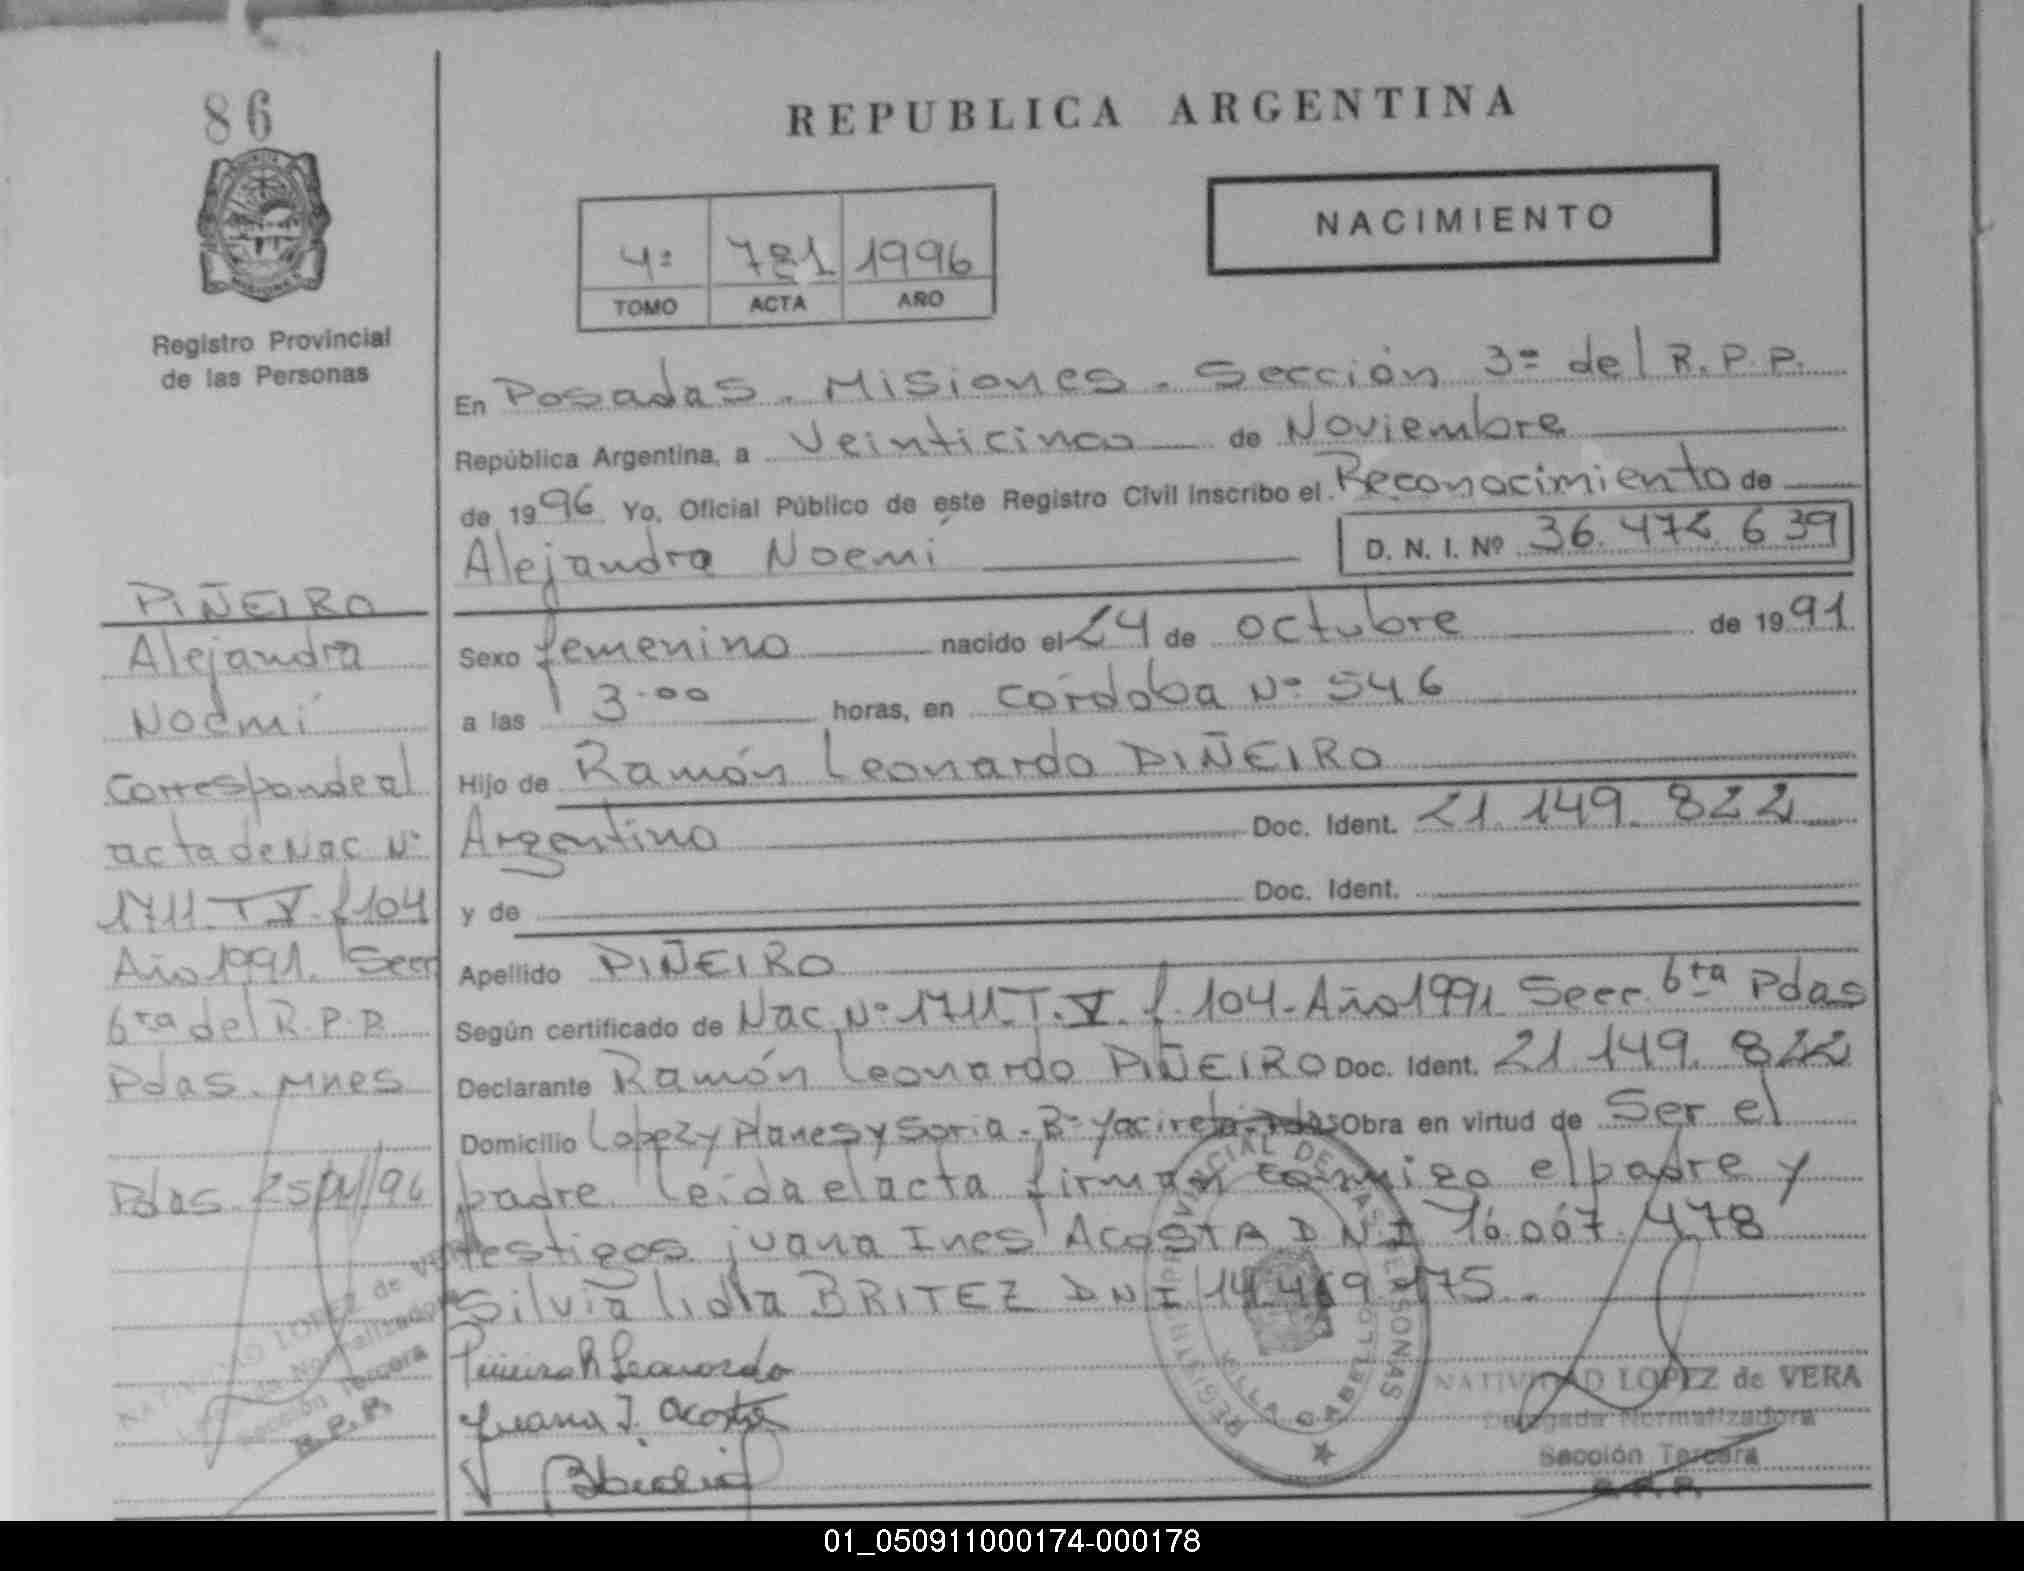 86
REPUBLICA ARGENTINA
NACIMIENTO
4º 781 1996
TOMO ACTA AÑO
Registro Provincial
de las Personas
En Posadas. Misiones. Sección 3ª del R.P.P.
República Argentina, a Veinticinco de Noviembre
de 1996 Yo, Oficial Público de este Registro Civil inscribo el Reconocimiento de
Alejandra Noemí D. N. I. Nº 36.472.639
Sexo femenino nacido el 24 de octubre de 1991
a las 3.00 horas, en córdoba Nº 546
Hijo de Ramón Leonardo PIÑEIRO
Argentino Doc. Ident. 21.149.822
y de Doc. Ident.
Apellido PIÑEIRO
Según certificado de Nac. Nº 1711.T.V. f. 104-Año 1991 Secc. 6ta Pdas
Declarante Ramón Leonardo PIÑEIRO Doc. Ident. 21.149.822
Domicilio Lopez y Planes y Soria - Bº Yacireta Obra en virtud de Ser el
padre. Leida el acta firman conmigo el padre y
testigos juana Ines Acosta DNI 16.007.478
Silvia lidia BRITEZ DNI 14.469.175.
PIÑEIRO
Alejandra
Noemí
Corresponde al
acta de Nac. Nº
1711.T V. f 104
Año 1991. Secc
6ta del R.P.P.
Pdas. Mnes
Pdas. 25/11/96
NATIVIDAD LOPEZ de VERA
Sección Tercera
R.P.P.
Piñeiro R Leonardo
Juana I. Acosta
REGISTRO PROVINCIAL DE LAS PERSONAS
VILLA CABELLO
NATIVIDAD LOPEZ de VERA
Delegada Normalizadora
Sección Tercera
R.P.P.
01_050911000174-000178